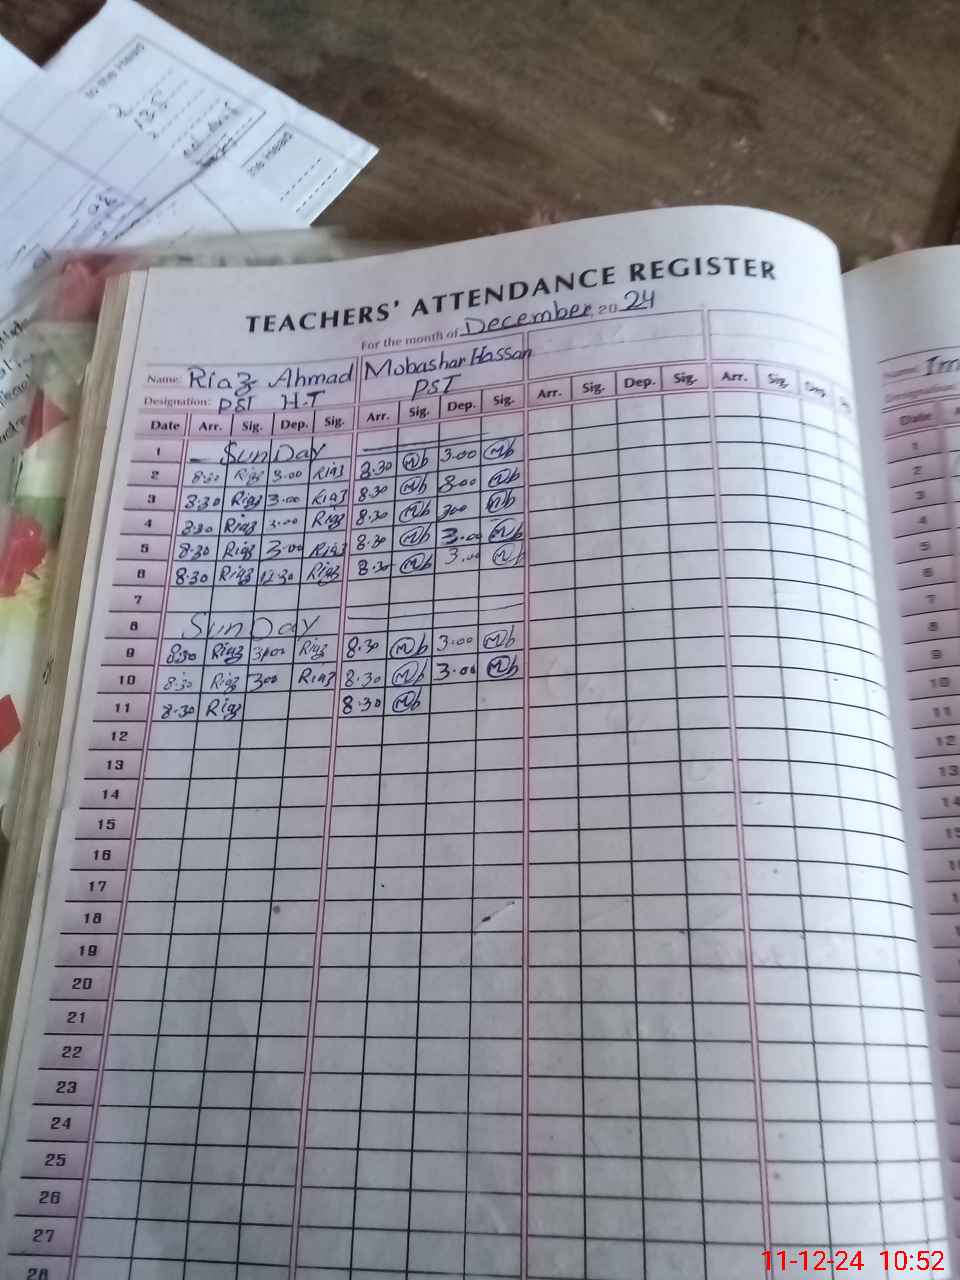 to the Head
the Head
TEACHERS' ATTENDANCE REGISTER
For the month of December, 2024
Name: Riaz Ahmad Mobashar Hassan
Designation: PST H.T PST
Date Arr. Sig. Dep. Sig. Arr. Sig. Dep. Sig. Arr. Sig. Dep. Sig. Arr. Sig. Dep.
1 SunDay
2 8:30 Riaz 3.00 Riaz 8.30 Mb 3.00 Mb
3 8:30 Riaz 3.00 Riaz 8.30 Mb 3.00 Mb
4 8:30 Riaz 3.00 Riaz 8.30 Mb 300 Mb
5 8.30 Riaz 3.00 Riaz 8.30 Mb 3.00 Mb
6 8:30 Riaz 12:30 Riaz 8.30 Mb 3.00 Mb
7
8 SunDay
9 8:30 Riaz 3.00 Riaz 8.30 Mb 3.00 Mb
10 8:30 Riaz 300 Riaz 8.30 Mb 3.00 Mb
11 8.30 Riaz 8.30 Mb
12
13
14
15
16
17
18
19
20
21
22
23
24
25
26
27
28
Name: Im
Designation:
Date
1
2
3
4
5
6
7
8
9
10
11
12
13
14
11-12-24 10:52